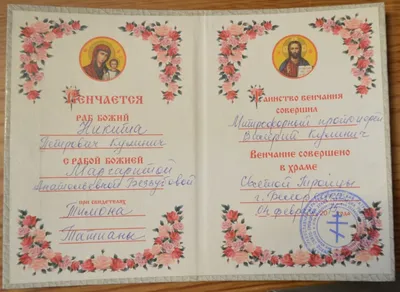 Венчается
раб Божий
Никита
Петрович Кулинич
с рабой Божией
Маргаритой
Анатольевной Беззубовой
при свидетелях
Тимона
Татианы
Таинство венчания
совершил
Митрофорный протоиерей
Валерий Кулинич
Венчание совершено
в храме
Святой Троицы
04 февраля